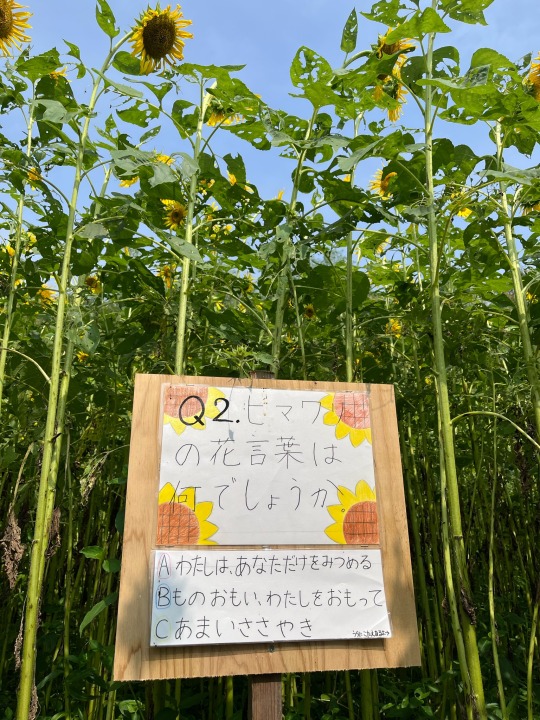 Q2.ヒマワリ
の花言葉は
何でしょうか。
A わたしは、あなただけをみつめる
B ものおもい、わたしをおもって
C あまいささやき